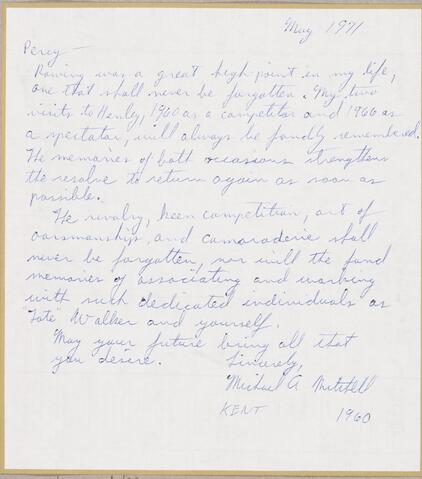 May 1971
Percy —
Rowing was a great high point in my life,
one that shall never be forgotten. My two
visits to Henley, 1960 as a competitor and 1966 as
a spectator, will always be fondly remembered.
The memories of both occasions strengthens
the resolve to return again as soon as
possible.
The rivalry, keen competition, art of
oarsmanship, and camaraderie shall
never be forgotten, nor will the fond
memories of associating and working
with such dedicated individuals as
"Tote" Walker and yourself.
May your future bring all that
you desire.
Sincerely,
Michael A. Mitchell
KENT 1960